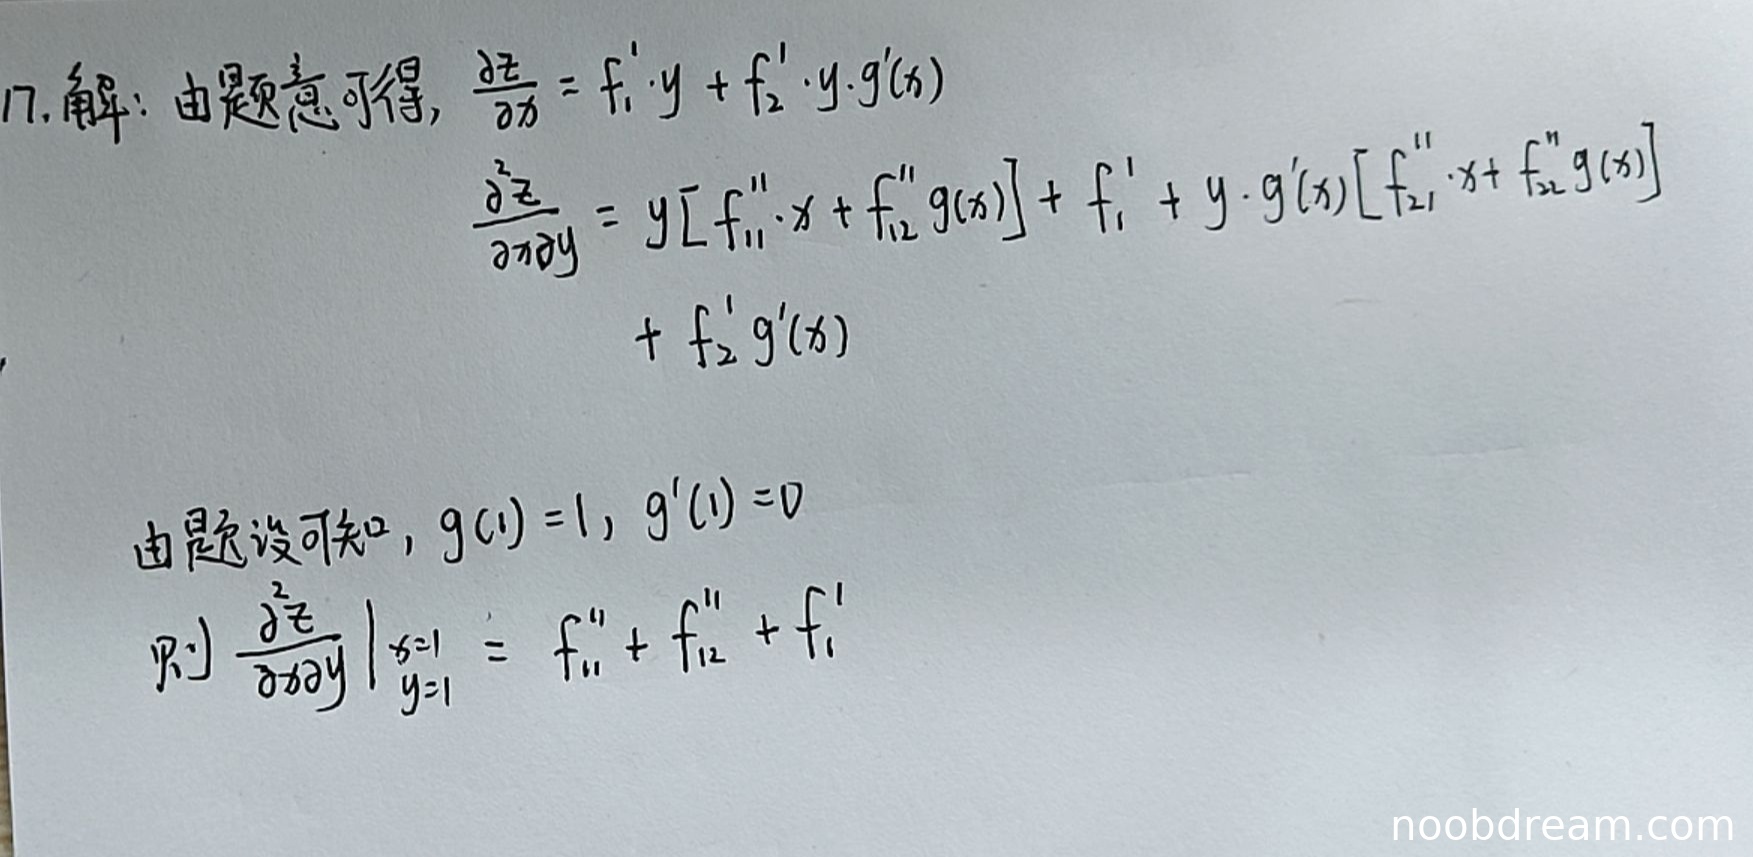 17.解：由题意可得, ∂z/∂x = f₁'·y + f₂'·y·g'(x)
∂²z/∂x∂y = y[f₁₁''·x + f₁₂''g(x)] + f₁' + y·g'(x)[f₂₁''·x + f₂₂''g(x)]
+ f₂'g'(x)
由题设可知, g(1)=1, g'(1)=0
则 ∂²z/∂x∂y | x=1 y=1 = f₁₁'' + f₁₂'' + f₁'
noobdream.com